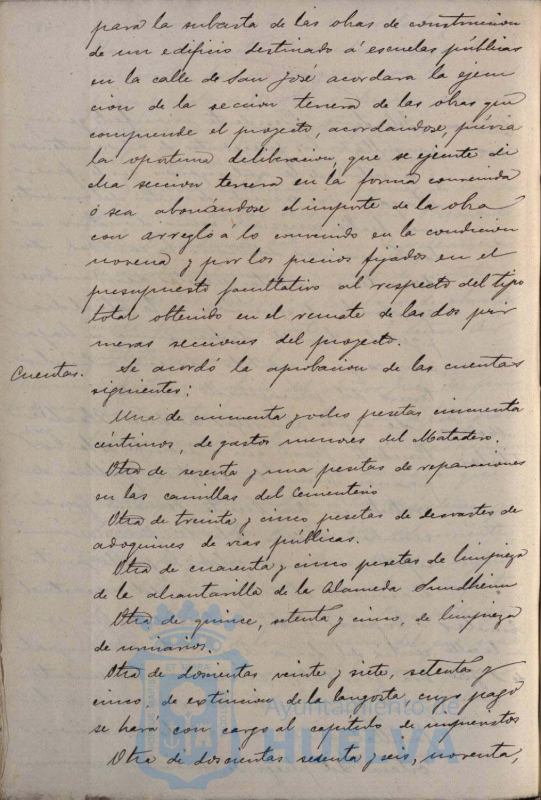 para la subasta de las obras de construccion
de un edificio destinado á escuelas públicas
en la calle de San José acordara la ejecu
cion de la seccion tercera de las obras que
comprende el proyecto, acordándose, prévia
la oportuna deliberacion, que se ejecute di
cha seccion tercera en la forma convenida
ó sea abonándose el importe de la obra
con arreglo á lo convenido en la condicion
novena y por los precios fijados en el
presupuesto facultativo al respecto del tipo
total obtenido en el remate de las dos pri
meras secciones del proyecto.
Cuentas. Se acordó la aprobacion de las cuentas
siguientes:
Una de cincuenta y ocho pesetas cincuenta
céntimos, de gastos menores del Matadero.
Otra de sesenta y una pesetas de reparaciones
en las camillas del Cementerio
Otra de treinta y cinco pesetas de desvastes de
adoquines de vias públicas.
Otra de cuarenta y cinco pesetas de limpieza
de la alcantarilla de la Alameda Sundheim
Otra de quince, setenta y cinco, de limpieza
de urinarios.
Otra de doscientas veinte y siete, setenta y
cinco de extincion de la langosta cuyo pago
se hará con cargo al capitulo de imprevistos
Otra de doscientas sesenta y seis, noventa,
Ayuntamiento de
HUELVA